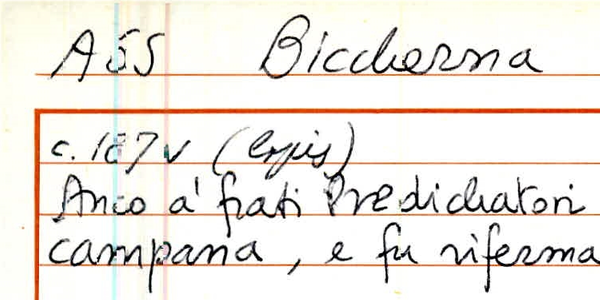 ASS Biccherna
c. 187v (copis)
Anco a' frati Predichatori
campana, e fu riferma